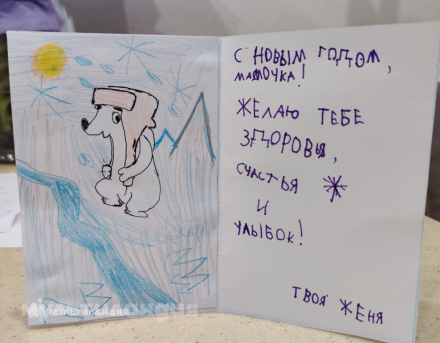 С НОВЫМ ГОДОМ,
МАМОЧКА!
ЖЕЛАЮ ТЕБЕ
ЗДОРОВЫ,
СЧАСТЬЯ
И
УЛЫБОК!
ТВОЯ ЖЕНЯ
МУЛЬТИЛАНДИЯ